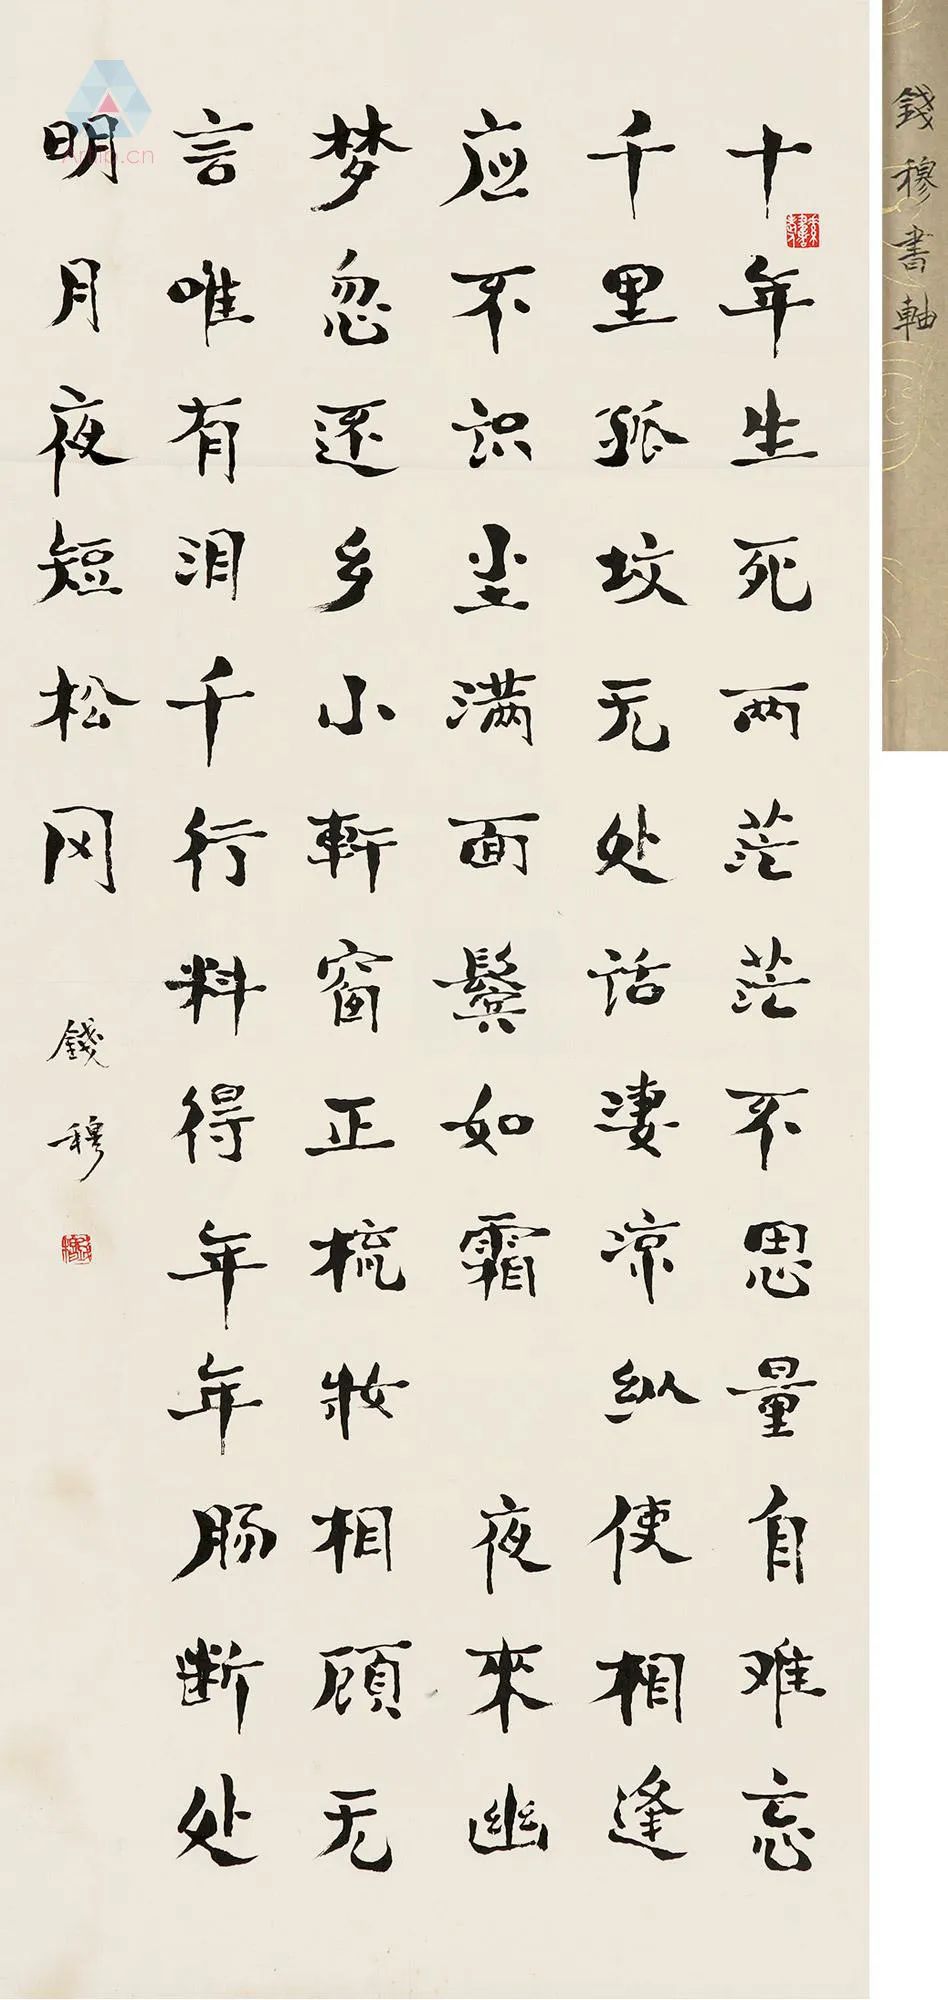 錢穆書軸
十年生死两茫茫不思量自难忘
千里孤坟无处话凄凉纵使相逢
应不识尘满面鬓如霜 夜來幽
梦忽还乡小軒窗正梳妝相顾无
言唯有泪千行料得年年肠断处
明月夜短松冈
錢穆